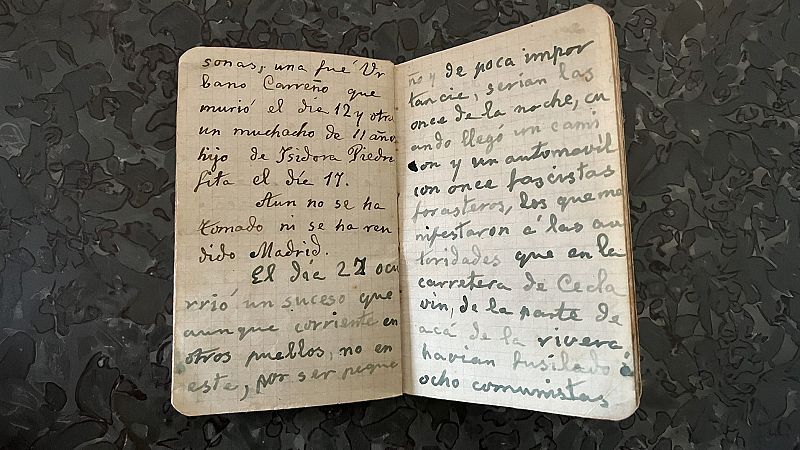 sonas, una fué Ur
bano Carreño que
murió el dia 12 y otra
un muchacho de 11 años
hijo de Isidora Piedra
fita el día 17.
Aun no se ha
tomado ni se ha ren
dido Madrid.
El día 27 ocu
rrió un suceso que
aunque corriente en
otros pueblos, no en
este, por ser peque
ño y de poca impor
tancia; serían las
once de la noche, cu
ando llegó un cami
on y un automavil
con once fascistas
forasteros, los que ma
nifestaron á las au
toridades que en la
carretera de Cecla
vin, de la parte de
acá de la rivera
havian fusilado á
ocho comunistas